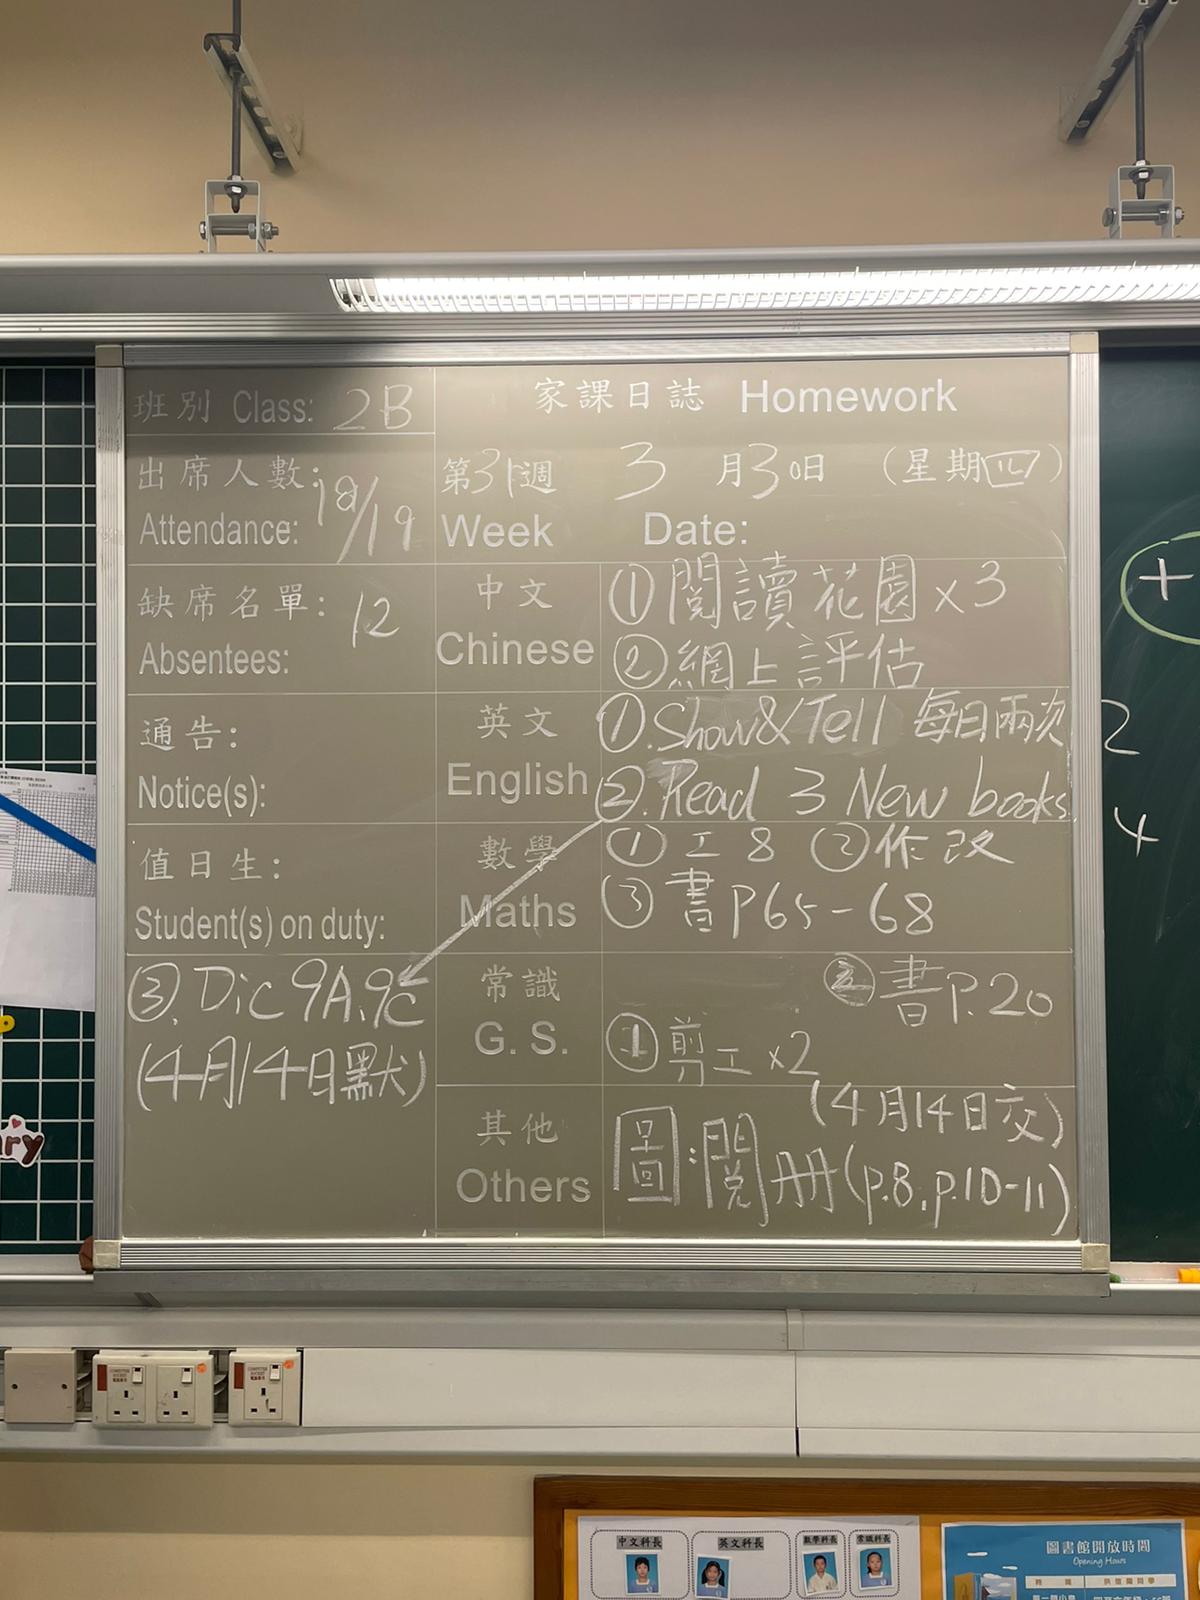 班別 Class: 2B
家課日誌 Homework
出席人數: 18/19
Attendance:
第31週 3月30日 (星期四)
Week Date:
缺席名單: 12
Absentees:
中文
Chinese
①閱讀花園x3
②網上評估
通告:
Notice(s):
英文
English
①.Show&Tell 每日兩次
②.Read 3 New books
③.Dic 9A.9C
(4月14日默)
值日生:
Student(s) on duty:
數學
Maths
①工8 ②作改
③書P65-68
常識
G. S.
②書P.20
①剪工x2
(4月14日交)
其他
Others
圖:閱冊(p.8,p.10-11)
+
2
4
ary
中文科長
英文科長
數學科長
常識科長
圖書館開放時間
Opening Hours